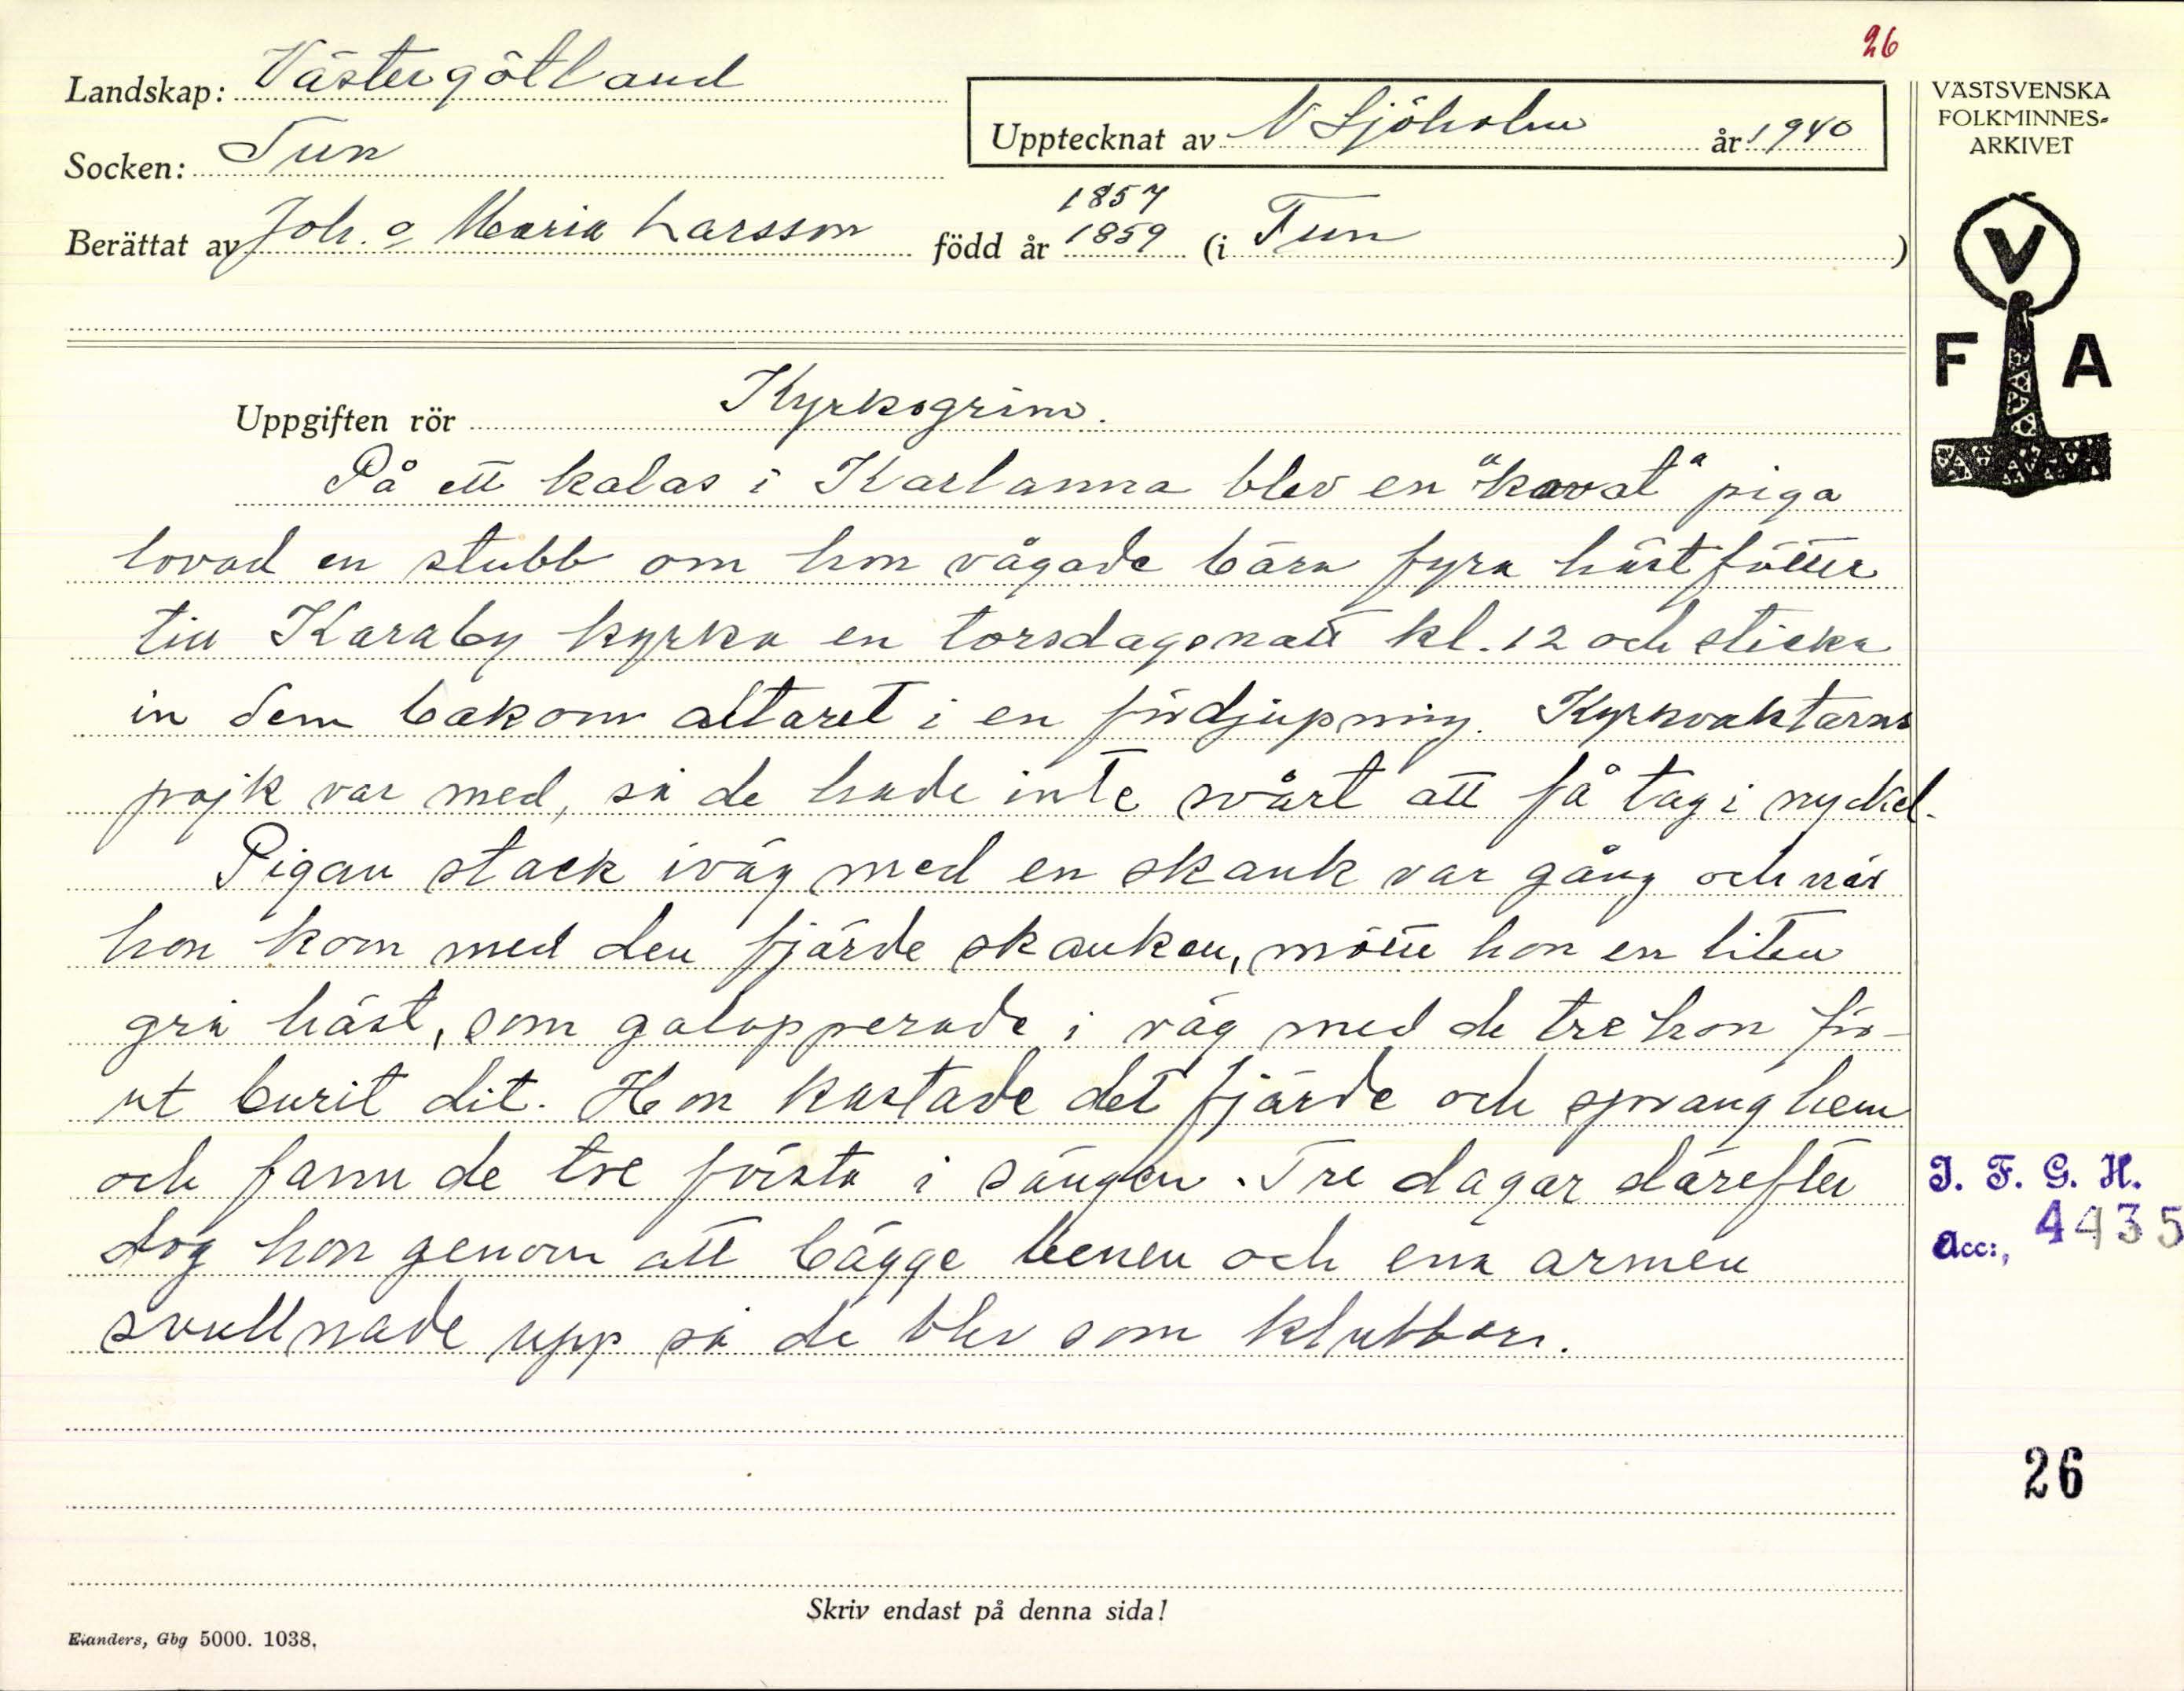 26
Landskap: Västergötland
VÄSTSVENSKA
FOLKMINNES-
ARKIVET
Upptecknat av N Sjöholm år 1940
Socken: Tun
1857
Berättat av Joh. o Maria Larsson född år 1859 (i Tun )
V
F A
Uppgiften rör Kyrkogrim.
På ett kalas i Karlanna blev en "kavat" piga
lovad en stubb om hon vågade bära fyra hästfötter
till Karaby kyrka en torsdagsnatt kl. 12 och sticka
in dem bakom altaret i en fördjupning. Kyrkvaktarns
pojk var med, så de hade inte svårt att få tag i nyckel.
Pigan stack iväg med en skank var gång och när
hon kom med den fjärde skanken, mötte hon en liten
grå häst, som galopperade i väg med de tre hon för-
ut burit dit. Hon kastade det fjärde och sprang hem
och fann de tre första i sängen. Tre dagar därefter
dog hon genom att bägge benen och ena armen
svullnade upp så de blev som klubbor.
I. F. G. H.
Acc:, 4435
26
Skriv endast på denna sida!
Elanders, Gbg 5000. 1038.